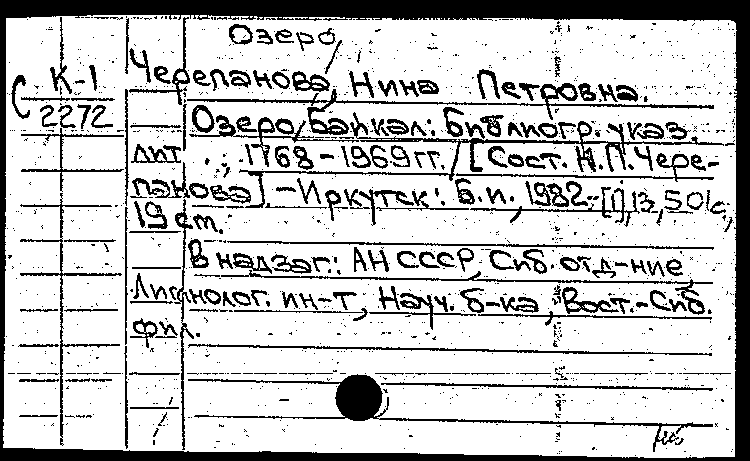 Озеро
С К-1
2272
Черепанова, Нина Петровна.
Озеро Байкал: Библиогр. указ.
лит., 1768-1969 гг. / [Сост. Н.П. Чере-
панова]. - Иркутск: Б.и., 1982. - [1], 13, 501 с.,
19 см.
В надзаг.: АН СССР, Сиб. отд-ние,
Лимнолог. ин-т, Науч. б-ка, Вост.-Сиб.
фил.